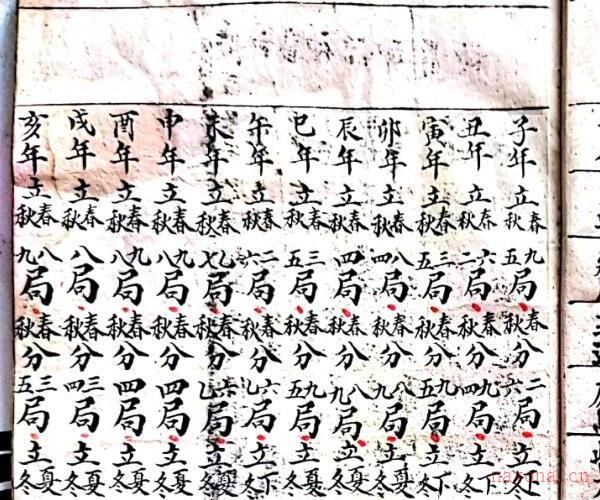 子年立春秋九五局春秋分二六局立下冬
丑年立春秋六二局春秋分九四局立下冬
寅年立春秋三五局春秋分九五局立下冬
卯年立春秋八四局春秋分八九局立夏冬
辰年立春秋四局春秋分八九局立夏冬
巳年立春秋三五局春秋分九五局立夏冬
午年立春秋二六局春秋分六乙局立下冬
未年立春秋乙七局春秋分六乙局立夏冬
申年立春秋九八局春秋分四局立夏冬
酉年立春秋九八局春秋分四局立夏冬
戌年立春秋八局春秋分三四局立夏冬
亥年立春秋八九局春秋分三五局立夏冬